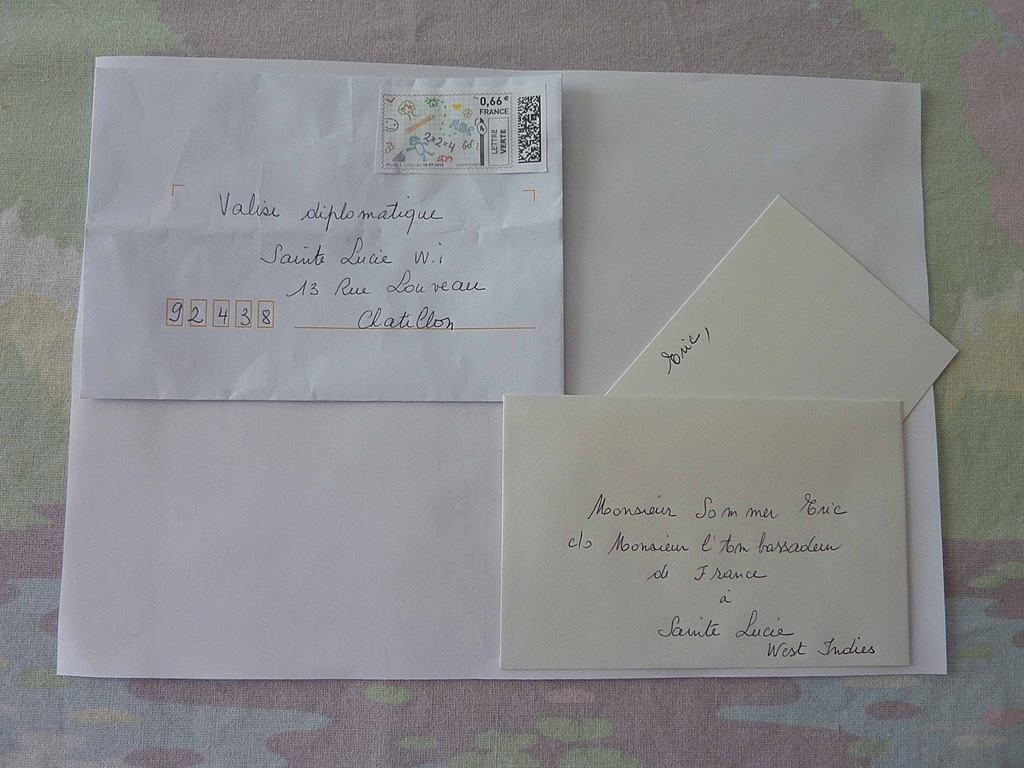 0,66 €
FRANCE
LETTRE VERTE
ABC
2+2=4
Valise diplomatique
Sainte Lucie W.i
13 Rue Louveau
92438 Chatillon
Eric,
Monsieur Sommer Eric
c/o Monsieur l'Ambassadeur
de France
à
Sainte Lucie
West Indies